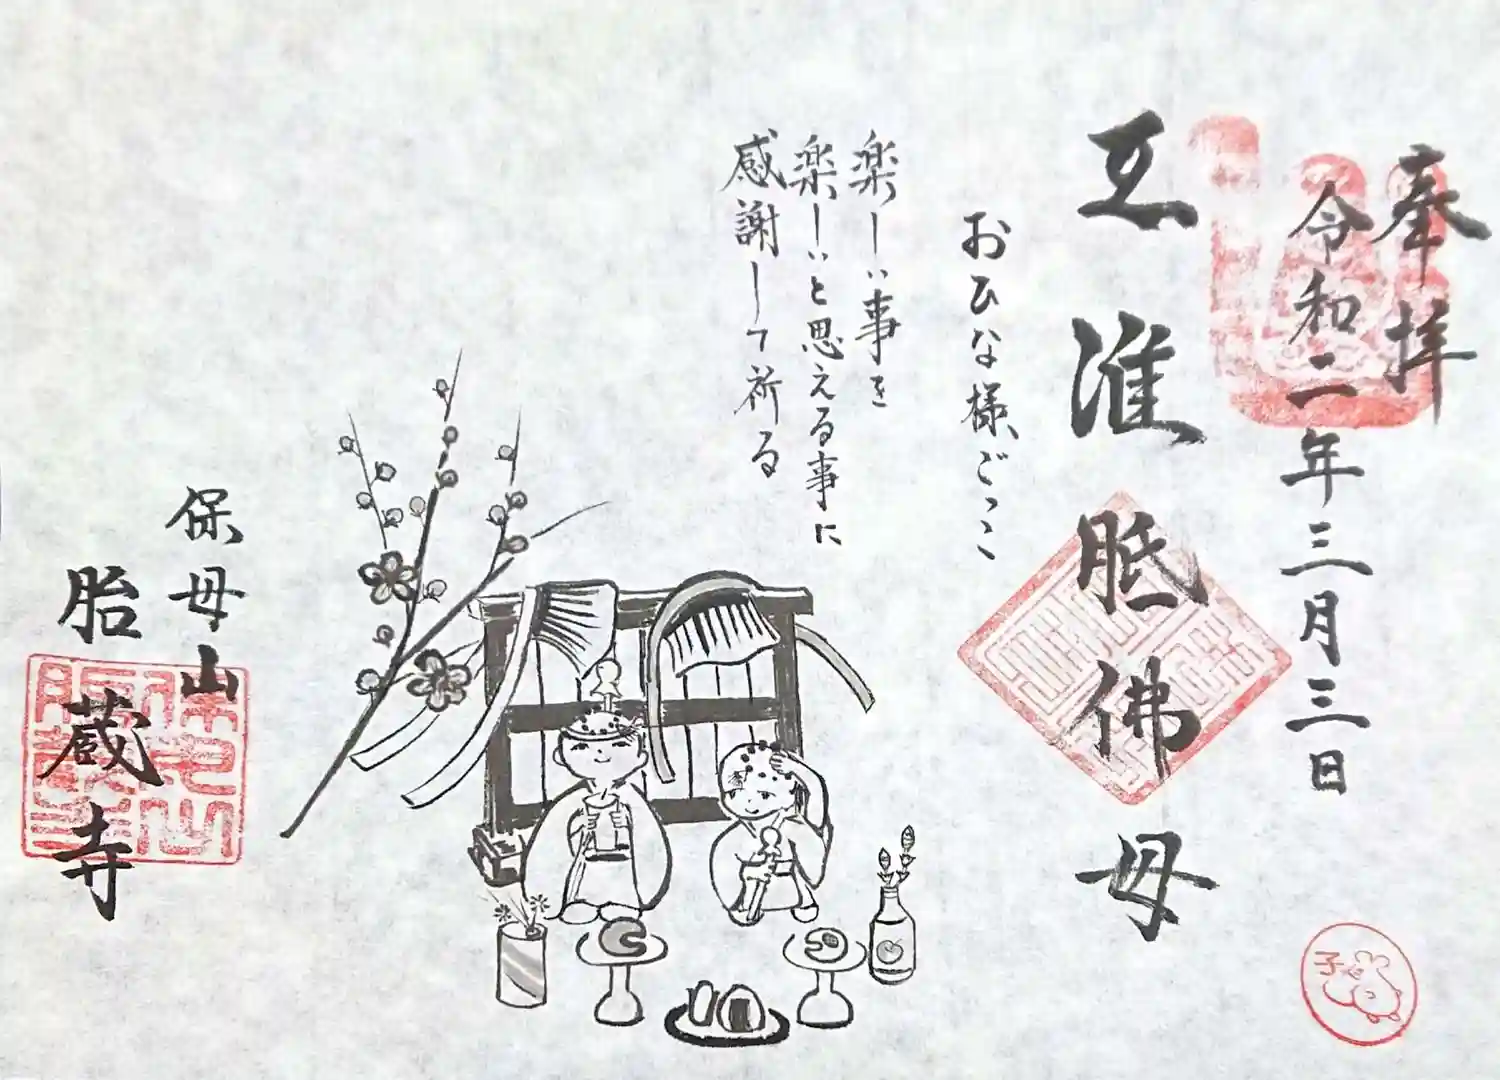 奉拝
令和二年三月三日
互准胝佛母
おひな様ごっこ
楽しい事を
楽しいと思える事に
感謝して祈る
保母山
胎蔵寺
子